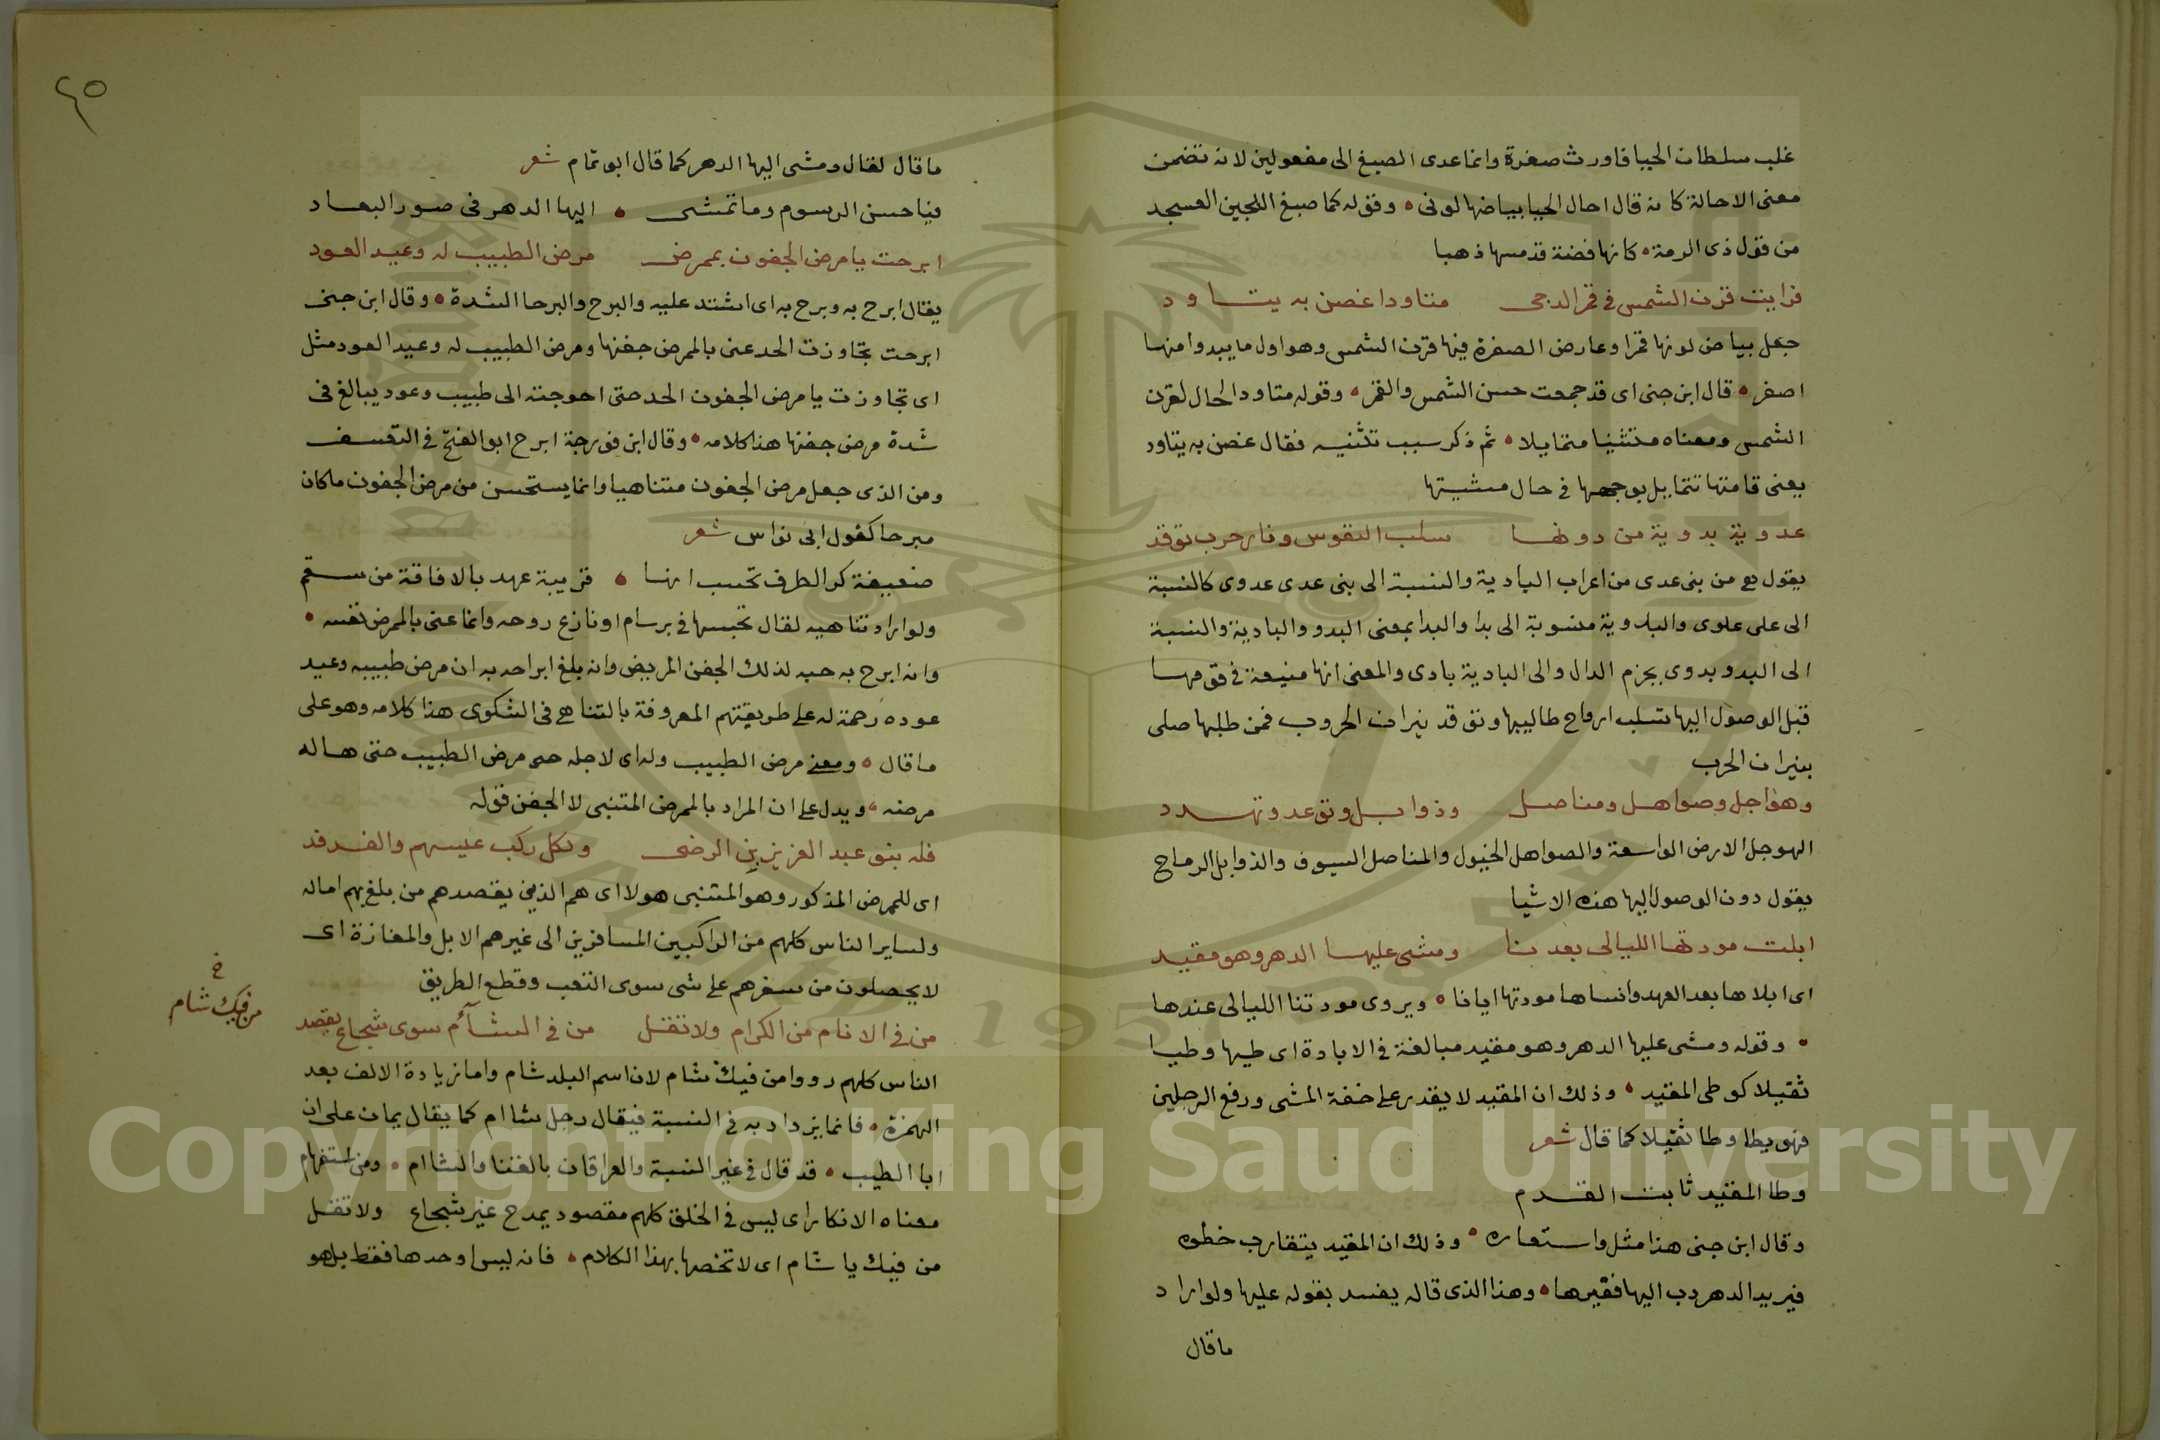 غلب سلطان الحيا فاورث صفرة وانما عدى الصبغ الى مفعولين لانه تضمن
معنى الاحالة كانه قال احال الحيا بياضها لونى ٥ وقوله كما صبغ اللجين العسجد
من قول ذى الرمة ٥ كانها فضة قد مسها ذهبا
فرايت قرن الشمس فى قمر الدجى متاودا غصن به يتاود
جعل بياض لونها قمرا وعارض الصفرة فيها قرن الشمس وهو اول ما يبدوا منها
اصفر ٥ قال ابن جنى اى قد جمعت حسن الشمس والقمر ٥ وقوله متاودا لحال لقرن
الشمس ومعناه متثنيا متمايلا ٥ ثم ذكر سبب تثنيه فقال غصن به يتاود
يعنى قامتها تتمايل بوجهها فى حال مشيتها
عدوية بدوية من دونها سلب النفوس ونار حرب توقد
يقول هى من بنى عدى من اعراب البادية والنسبة الى بنى عدى عدوى كالنسبة
الى على علوى والبدوية منسوبة الى بدا والبدا بمعنى البدو والبادية والنسبة
الى البدو بدوى بجزم الدال والى البادية بادى والمعنى انها منيعة فى قومها
قبل الوصول اليها تسلب ارواح طالبيها وتوقد نيران الحروب فمن طلبها صلى
بنيران الحرب
وهواجل وصواهل ومناصل وذوابل وتوعد وتهدد
الهوجل الارض الواسعة والصواهل الخيول والمناصل السيوف والذوابل الرماح
يقول دون الوصول اليها هذه الاشيا
ابلت مودتها الليالى بعدنا ومشى عليها الدهر وهو مقيد
اى ابلاها بعد العهد وانساها مودتها ايانا ٥ ويروى مودتنا الليالى عندها
٥ وقوله ومشى عليها الدهر وهو مقيد مبالغة فى الابادة اى طيها وطيا
ثقيلا كوطى المقيد ٥ وذلك ان المقيد لا يقدر على خفة المشى ورفع الرجلين
فهو يطا وطا ثقيلا كما قال شعر
وطا المقيد ثابت القدم
وقال ابن جنى هذا مثل واستعاره ٥ وذلك ان المقيد يتقارب خطوه
فيريد الدهر دب اليها فغيرها ٥ وهذا الذى قاله يفسد بقوله عليها ولو اراد
ما قال
٤٥
ما قال لقال ومشى اليها الدهر كما قال ابو تمام شعر
فيا حسن الرسوم وما تمشى ٥ اليها الدهر فى صور البعاد
ابرحت يا مرض الجفون بممرض مرض الطبيب له وعيد العود
يقال ابرح به وبرح به اى اشتد عليه والبرح والبرحا الشدة ٥ وقال ابن جنى
ابرحت تجاوزت الحد عنى بالممرض جفنها ومرض الطبيب له وعيد العود مثل
اى تجاوزت يا مرض الجفون الحد حتى احوجته الى طبيب وعود يبالغ فى
شدة مرض جفنها هذا كلامه ٥ وقال ابن فورجة ابرح ابو الفتح فى التعسف
ومن الذى جعل مرض الجفون متناهيا وانما يستحسن من مرض الجفون ما كان
مبرحا كقول ابى نواس شعر
ضعيفة كر الطرف تحسب انها ٥ قريبة عهد بالافاقة من سقم
ولو اراد تناهيه لقال تحبسها فى برسام او نازع روحه وانما عنى بالممرض نفسه ٥
وانه ابرح به حبه لذلك الجفن المريض وانه بلغ ابراحه به ان مرض طبيبه وعيد
عوده رحمة له على طريقتهم المعروفة بالتناهى فى الشكوى هذا كلامه وهو على
ما قال ٥ ومعنى مرض الطبيب وله اى لاجله حمى مرض الطبيب حتى هاله
مرضه ٥ ويدل على ان المراد بالممرض المتنبى لا الجفن قوله
فله بنو عبد العزيز بن الرضى ولكل ركب عيسهم والفدفد
اى للمرض المذكور وهو المتنبى هولا اى هم الذين يقصدهم من بلغ بهم اماله
ولساير الناس كلهم من الراكبين المسافرين الى غيرهم الابل والمفازة اى
لا يحصلون من سفرهم على شى سوى التعب وقطع الطريق
من فى الانام من الكرام ولا تقل من فى الشآم سوى شجاع يقصد
خ
من فيك شام
الناس كلهم رووا من فيك شام لان اسم البلد شام واما زيادة الالف بعد
الهمزة ٥ فانما يزداد به فى النسبة فيقال رجل شاام كما يقال يمان على ان
ابا الطيب ٥ قد قال فى غير النسبة والعراقان بالقنا والشاام ٥ ومن استفهام
معناه الانكار اى ليس فى الخلق كلهم مقصود يمدح غير شجاع ولا تقل
من فيك يا شام اى لا تخصها بهذا الكلام ٥ فانه ليس اوحدها فقط بل هو
Copyright © King Saud University
1957